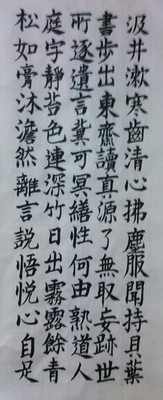 汲井漱寒齒清心拂塵服閒持貝葉
書步出東齋讀真源了無取妄跡世
所逐遺言冀可冥繕性何由熟道人
庭宇靜苔色連深竹日出霧露餘青
松如膏沐澹然離言說悟悅心自足